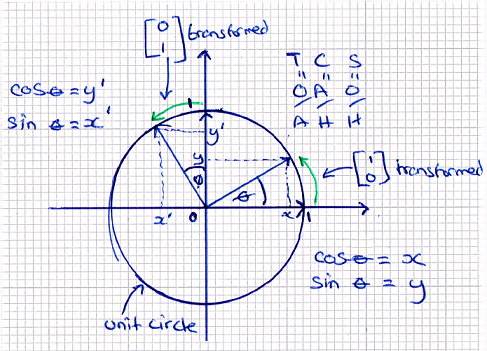 [0 1] transformed
T C S
" " "
O A O
A H H
cosθ = y'
sin θ = x'
1
y'
y
θ
θ
[1 0] transformed
x'
0
x
1
cosθ = x
sin θ = y
unit circle